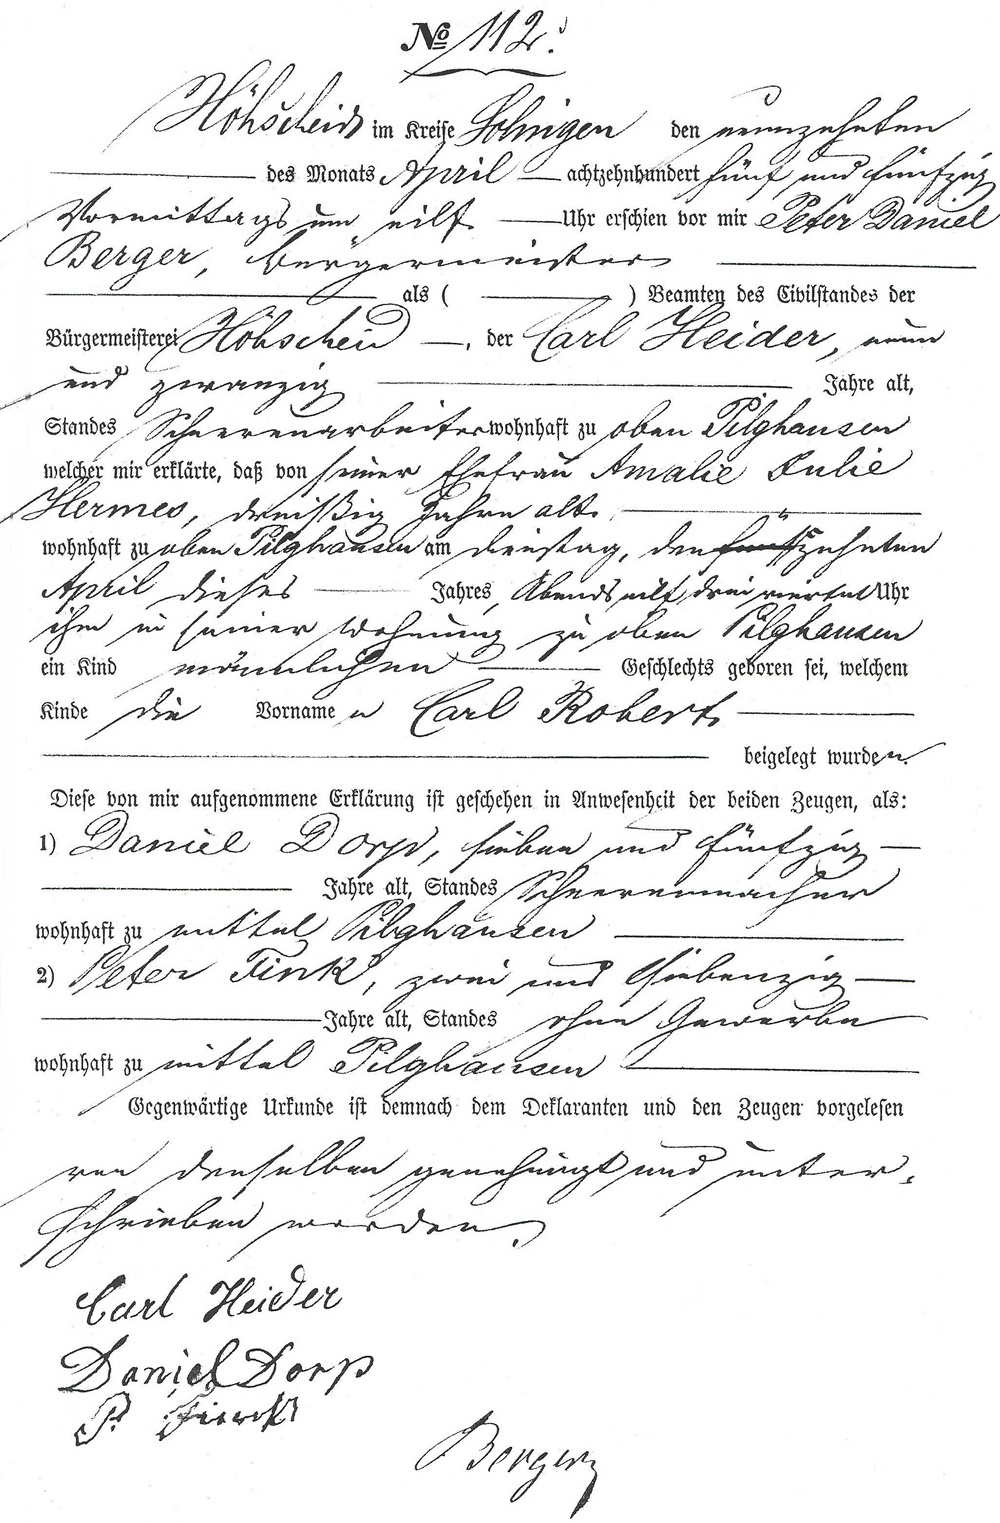 № 112.
Höhscheid im Kreise Solingen den neunzehnten
des Monats April achtzehnhundert fünf und fünfzig
Vormittags um eilf Uhr erschien vor mir Peter Daniel
Berger, Bürgermeister
als ( ) Beamten des Civilstandes der
Bürgermeisterei Höhscheid, der Carl Heider, neun
und zwanzig Jahre alt,
Standes Scheerenarbeiter wohnhaft zu oben Pilghausen
welcher mir erklärte, daß von seiner Ehefrau Amalie Julie
Hermes, dreißig Jahre alt,
wohnhaft zu oben Pilghausen am Dienstag, den zehnten
April dieses Jahres, Abends eilf drei viertel Uhr
ihm in seiner Wohnung zu oben Pilghausen
ein Kind männlichen Geschlechts geboren sei, welchem
Kinde die Vornamen Carl Robert
beigelegt wurden.
Diese von mir aufgenommene Erklärung ist geschehen in Anwesenheit der beiden Zeugen, als:
1) Daniel Dorp, sieben und fünfzig
Jahre alt, Standes Scheerenmacher
wohnhaft zu mittel Pilghausen
2) Peter Fink, zwei und siebenzig
Jahre alt, Standes ohne Gewerbe
wohnhaft zu mittel Pilghausen
Gegenwärtige Urkunde ist demnach dem Deklaranten und den Zeugen vorgelesen
von denselben genehmigt und unter-
schrieben worden.
Carl Heider
Daniel Dorp
P.
Berger